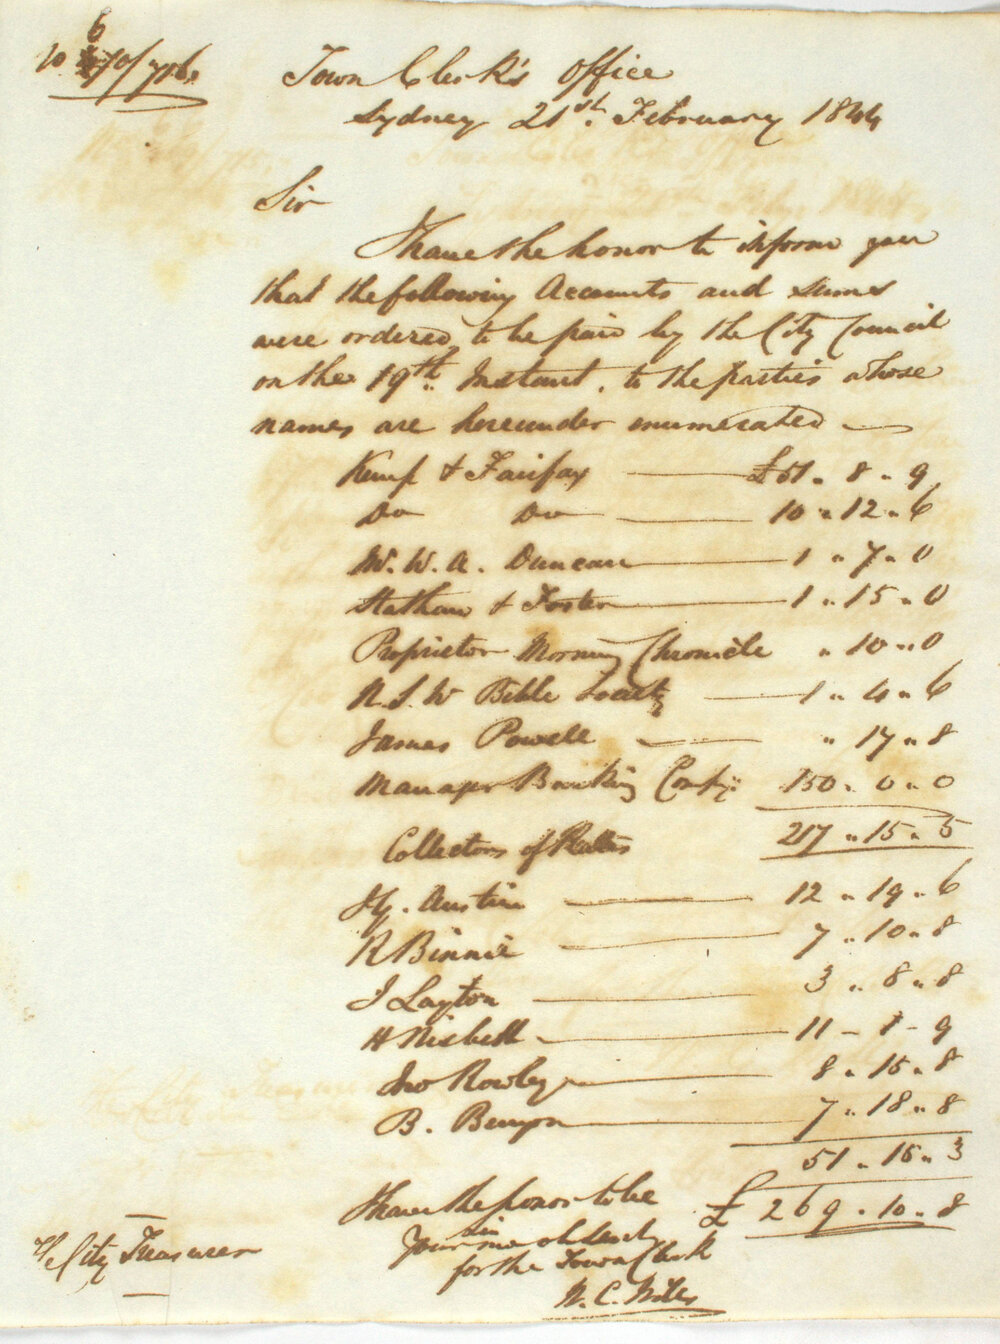 6
Town Clerk's Office
Sydney 21st. February 1844
Sir
I have the honor to inform you
that the following Accounts and sums
were ordered to be paid by the City Council
on the 19th. Instant, to the parties whose
names are hereunder enumerated
Kemp & Fairfax £51 " 8 " 9
Do Do 10 " 12 " 6
W. A. Duncan 1 " 7 " 0
Statham & Foster 1 " 15 " 0
Proprietor Morning Chronicle " 10 " 0
N.S.W Bible Society 1 " 4 " 6
James Powell " 17 " 8
Manager Banking Compy: 150 " 0 " 0
217 " 15 " 5
Collectors of Rates
Hy. Austin 12 " 19 " 6
R Binnie 7 " 10 " 8
J Layton 3 " 8 " 8
H Nisbett 11 - 1 - 9
Jno Rowley 8 " 15 " 8
B. Benyon 7 " 18 " 8
51 " 15 " 3
I have the honor to be £269 " 10 " 8
Sir
Your
for the Town Clerk
The City Treasurer